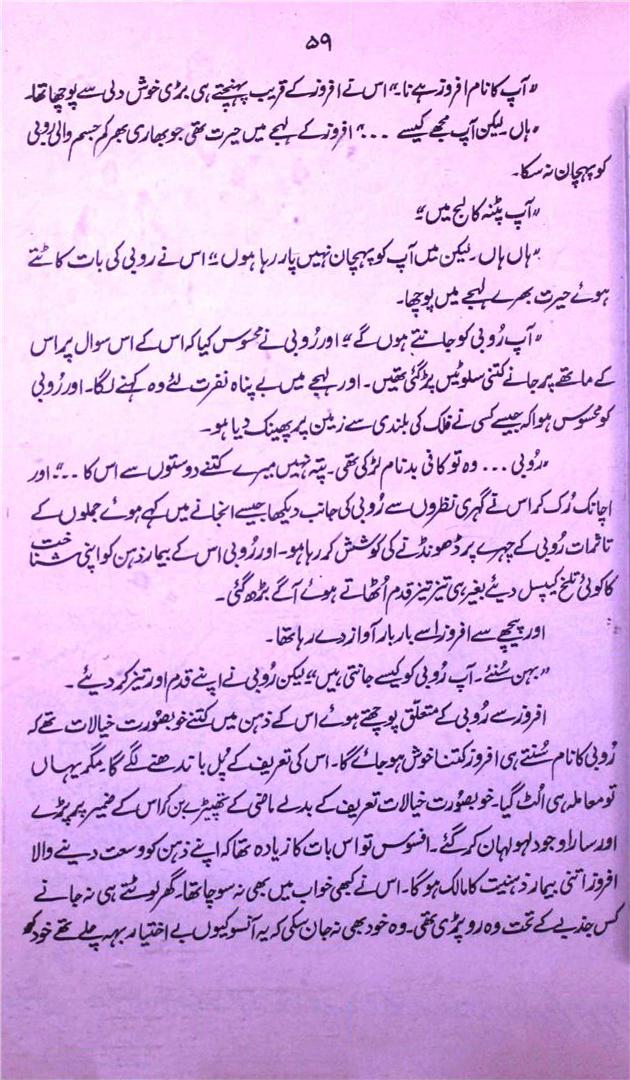 ۵۹
"آپ کا نام افروز ہے نا۔" اس نے افروز کے قریب پہنچتے ہی بڑی خوش دلی سے پوچھا تھا۔
"ہاں لیکن آپ مجھے کیسے ..." افروز کے لہجے میں حیرت تھی جو بھاری بھرکم جسم والی روبی
کو پہچان نہ سکا۔
"آپ پٹنہ کالج میں۔"
"ہاں ہاں۔ لیکن میں آپ کو پہچان نہیں پا رہا ہوں۔" اس نے روبی کی بات کاٹتے
ہوئے حیرت بھرے لہجے میں پوچھا۔
"آپ رُوبی کو جانتے ہوں گے" اور رُوبی نے محسوس کیا کہ اس کے اس سوال پر اس
کے ماتھے پر جانے کتنی سلوٹیں پڑ گئی تھیں۔ اور لہجے میں بے پناہ نفرت لئے وہ کہنے لگا۔ اور رُوبی
کو محسوس ہوا کہ جیسے کسی نے فلک کی بلندی سے زمین پر پھینک دیا ہو۔
"رُوبی ... وہ تو کافی بدنام لڑکی تھی۔ پتہ نہیں میرے کتنے دوستوں سے اس کا ..." اور
اچانک رُک کر اس نے گہری نظروں سے رُوبی کی جانب دیکھا جیسے انجانے میں کہے ہوئے جملوں کے
تاثرات رُوبی کے چہرے پر ڈھونڈنے کی کوشش کر رہا ہو۔ اور رُوبی اس کے بیمار ذہن کو اپنی شناخت
کا کوئی تلخ کیپسل دیئے بغیر ہی تیز تیز قدم اُٹھاتے ہوئے آگے بڑھ گئی۔
اور پیچھے سے افروز اسے بار بار آواز دے رہا تھا۔
"بہن سُنئے۔ آپ رُوبی کو کیسے جانتی ہیں" لیکن رُوبی نے اپنے قدم اور تیز کر دیئے۔
افروز سے رُوبی کے متعلق پوچھتے ہوئے اس کے ذہن میں کتنے خوبصُورت خیالات تھے کہ
رُوبی کا نام سُنتے ہی افروز کتنا خوش ہو جائے گا۔ اس کی تعریف کے پُل باندھنے لگے گا مگر یہاں
تو معاملہ ہی اُلٹ گیا۔ خوبصُورت خیالات تعریف کے بدلے ماضی کے تھپیڑے بن کر اس کے ضمیر پر پڑے
اور سارا وجود لہولہان کر گئے۔ افسوس تو اس بات کا زیادہ تھا کہ اپنے ذہن کو وسعت دینے والا
افروز اتنی بیمار ذہنیت کا مالک ہوگا۔ اس نے کبھی خواب میں بھی نہ سوچا تھا۔ گھر لوٹتے ہی نہ جانے
کس جذبے کے تحت وہ رو پڑی تھی۔ وہ خود بھی نہ جان سکی کہ یہ آنسو کیوں بے اختیار بہہ چلے تھے خود کو